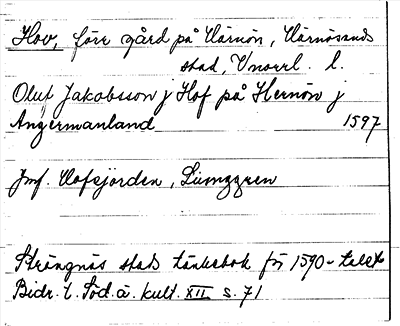 Hov, förr gård på Härnön, Härnösands
stad, Vnorrl. l.
Oluf Jakobsson j Hof på Hernön j
Ångermanland 1597
Jmf. Hofsjorden,
Strängnäs stads tänkebok för 1590-talet
Bidr. t. Söd. ä. kult. XII s. 71